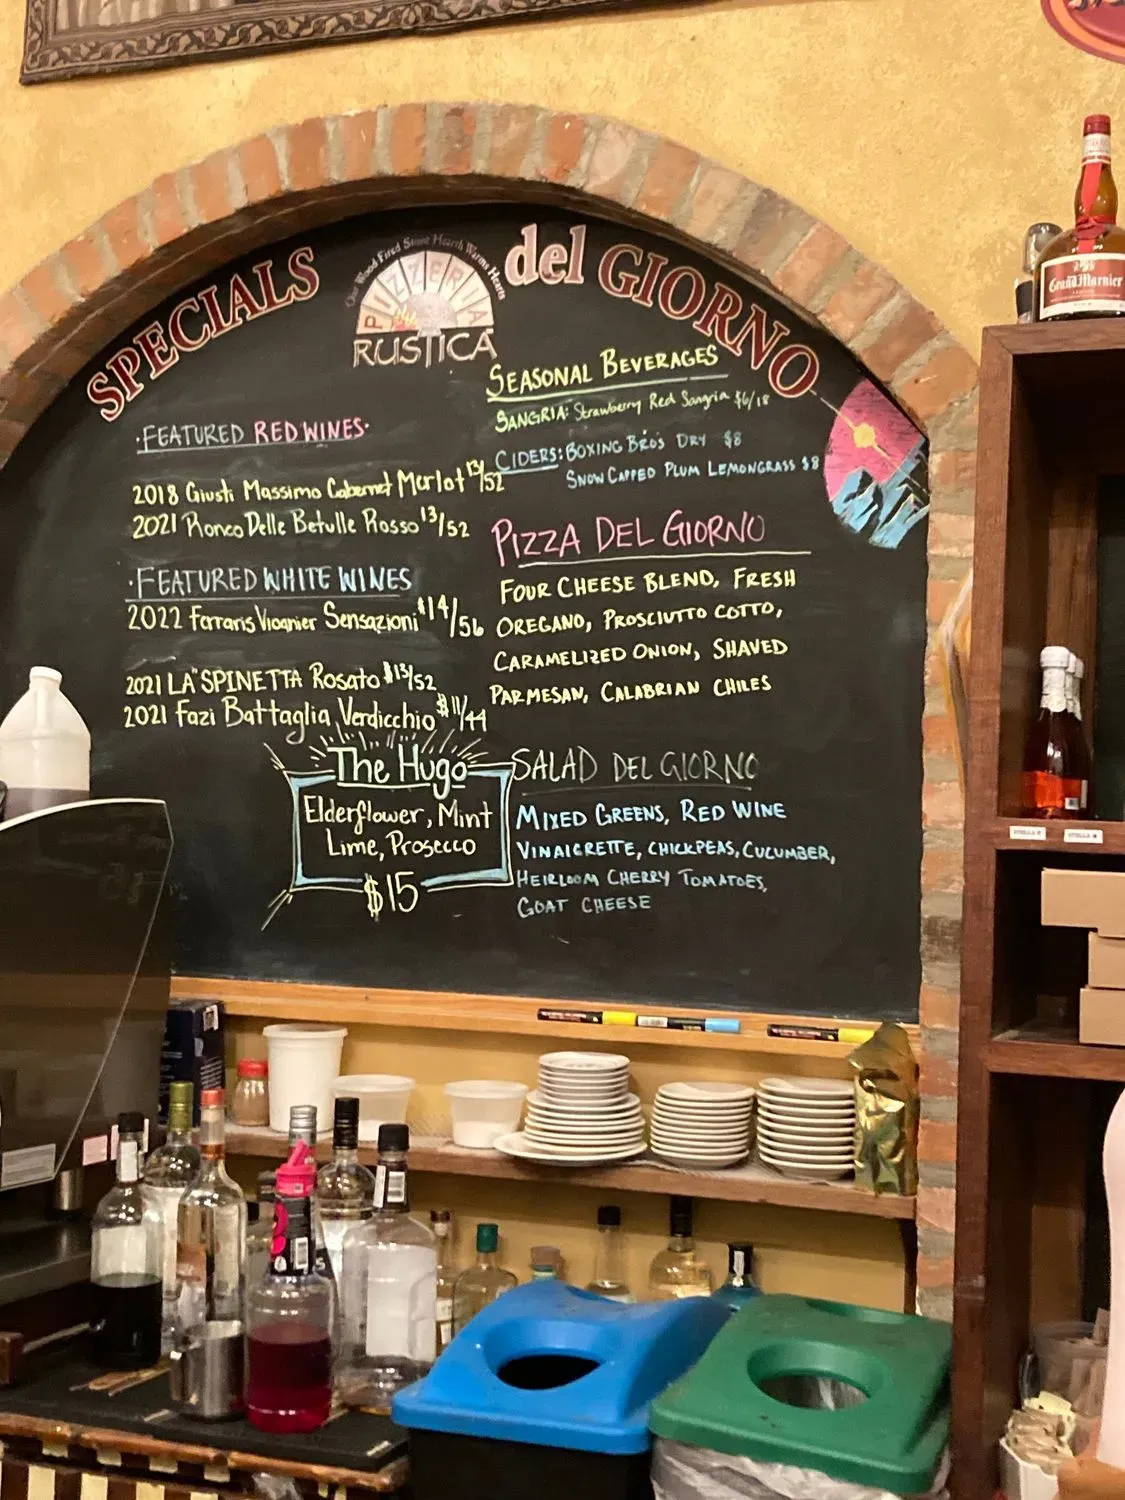 SPECIALS del GIORNO
Our Wood Fired Stone Hearth Warms Hearts
PIZZERIA
RUSTICA
·FEATURED RED WINES·
2018 Giusti Massimo Cabernet Merlot 13/52
2021 Ronco Delle Betulle Rosso 13/52
·FEATURED WHITE WINES
2022 Ferraris Viognier Sensazioni $14/56
2021 LA SPINETTA Rosato $13/52
2021 Fazi Battaglia Verdicchio $11/44
The Hugo
Elderflower, Mint
Lime, Prosecco
$15
SEASONAL BEVERAGES
SANGRIA: Strawberry Red Sangria $6/18
CIDERS: BOXING BRO'S DRY $8
SNOW CAPPED PLUM LEMONGRASS $8
PIZZA DEL GIORNO
FOUR CHEESE BLEND, FRESH
OREGANO, PROSCIUTTO COTTO,
CARAMELIZED ONION, SHAVED
PARMESAN, CALABRIAN CHILES
SALAD DEL GIORNO
MIXED GREENS, RED WINE
VINAIGRETTE, CHICKPEAS, CUCUMBER,
HEIRLOOM CHERRY TOMATOES,
GOAT CHEESE
Grand Marnier
STELLA
STELLA